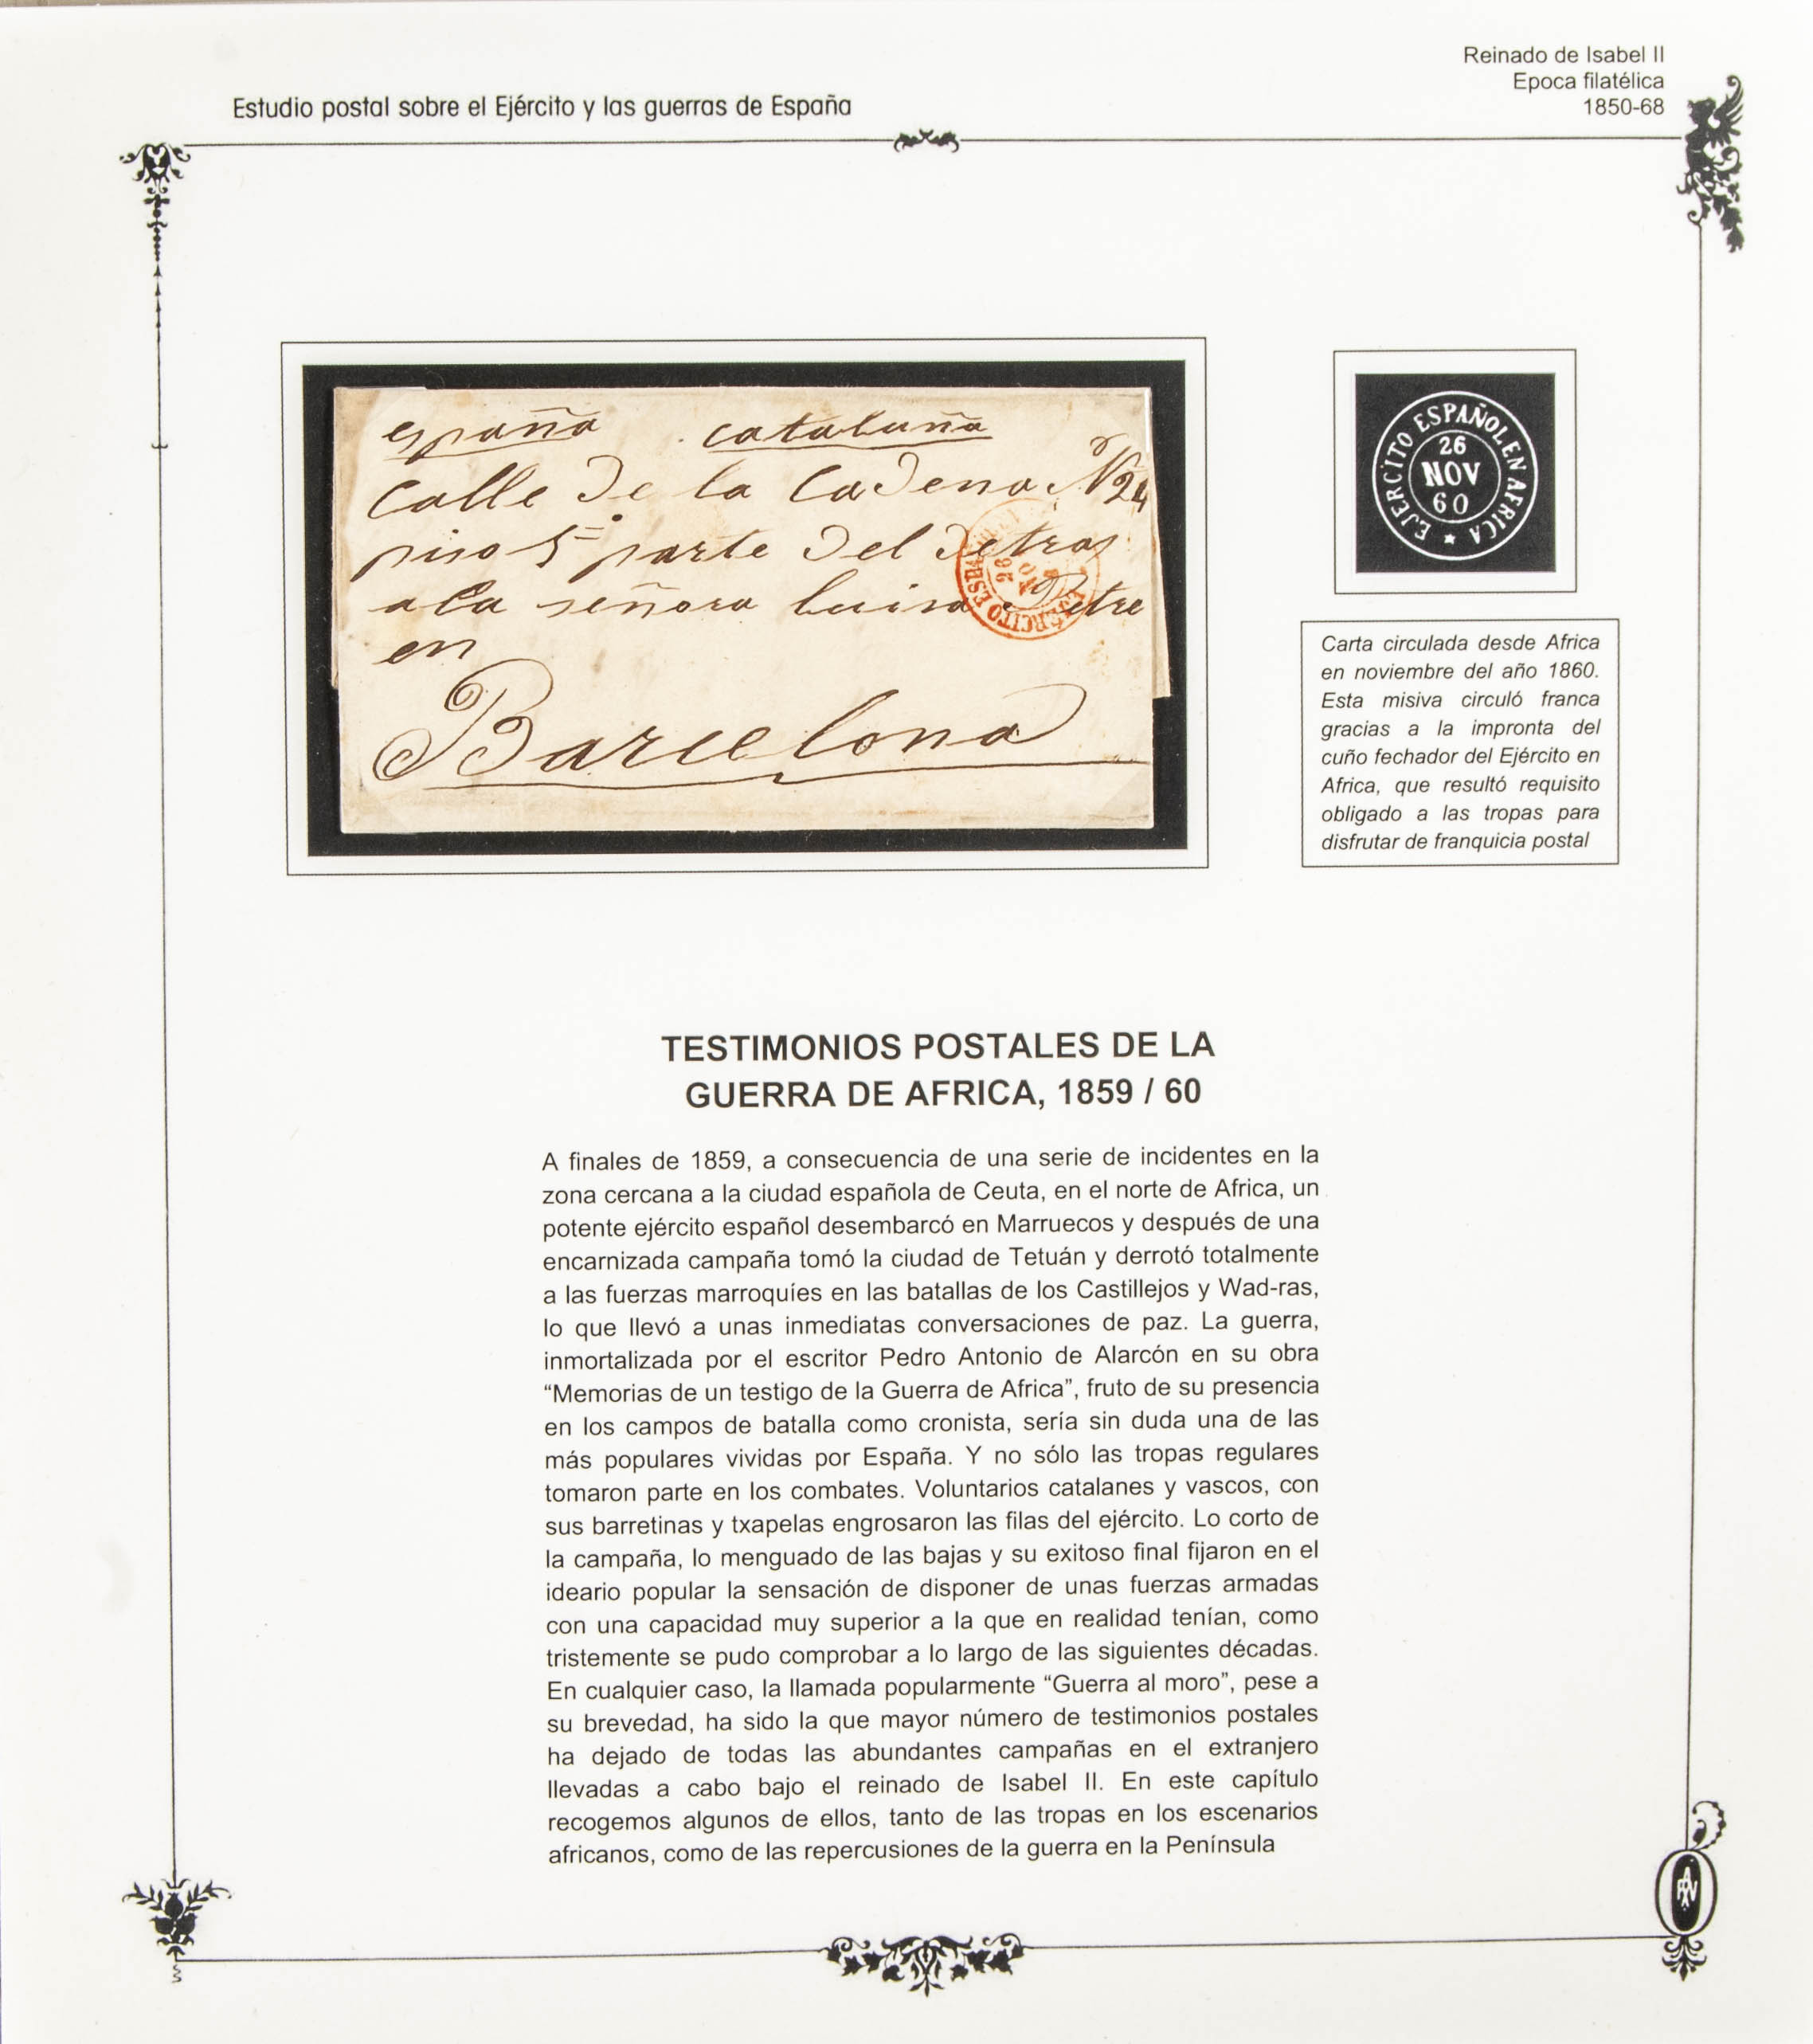 Reinado de Isabel II
Epoca filatélica
1850-68
Estudio postal sobre el Ejército y las guerras de España
españa cataluña
Calle de la Cadena Nº 24
piso 5º parte del detras
a la señora Luisa Petre
en
Barcelona
EJÉRCITO ESPA
26
NOV
EJERCITO ESPAÑOL EN AFRICA
26
NOV
60
Carta circulada desde Africa
en noviembre del año 1860.
Esta misiva circuló franca
gracias a la impronta del
cuño fechador del Ejército en
Africa, que resultó requisito
obligado a las tropas para
disfrutar de franquicia postal
TESTIMONIOS POSTALES DE LA
GUERRA DE AFRICA, 1859 / 60
A finales de 1859, a consecuencia de una serie de incidentes en la
zona cercana a la ciudad española de Ceuta, en el norte de Africa, un
potente ejército español desembarcó en Marruecos y después de una
encarnizada campaña tomó la ciudad de Tetuán y derrotó totalmente
a las fuerzas marroquíes en las batallas de los Castillejos y Wad-ras,
lo que llevó a unas inmediatas conversaciones de paz. La guerra,
inmortalizada por el escritor Pedro Antonio de Alarcón en su obra
“Memorias de un testigo de la Guerra de Africa”, fruto de su presencia
en los campos de batalla como cronista, sería sin duda una de las
más populares vividas por España. Y no sólo las tropas regulares
tomaron parte en los combates. Voluntarios catalanes y vascos, con
sus barretinas y txapelas engrosaron las filas del ejército. Lo corto de
la campaña, lo menguado de las bajas y su exitoso final fijaron en el
ideario popular la sensación de disponer de unas fuerzas armadas
con una capacidad muy superior a la que en realidad tenían, como
tristemente se pudo comprobar a lo largo de las siguientes décadas.
En cualquier caso, la llamada popularmente “Guerra al moro”, pese a
su brevedad, ha sido la que mayor número de testimonios postales
ha dejado de todas las abundantes campañas en el extranjero
llevadas a cabo bajo el reinado de Isabel II. En este capítulo
recogemos algunos de ellos, tanto de las tropas en los escenarios
africanos, como de las repercusiones de la guerra en la Península